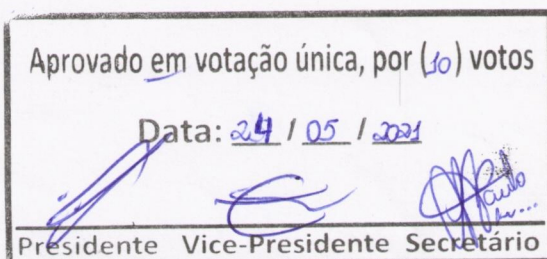 Aprovado em votação única, por (10) votos
Data: 24 / 05 / 2021
Paulo
Presidente Vice-Presidente Secretário